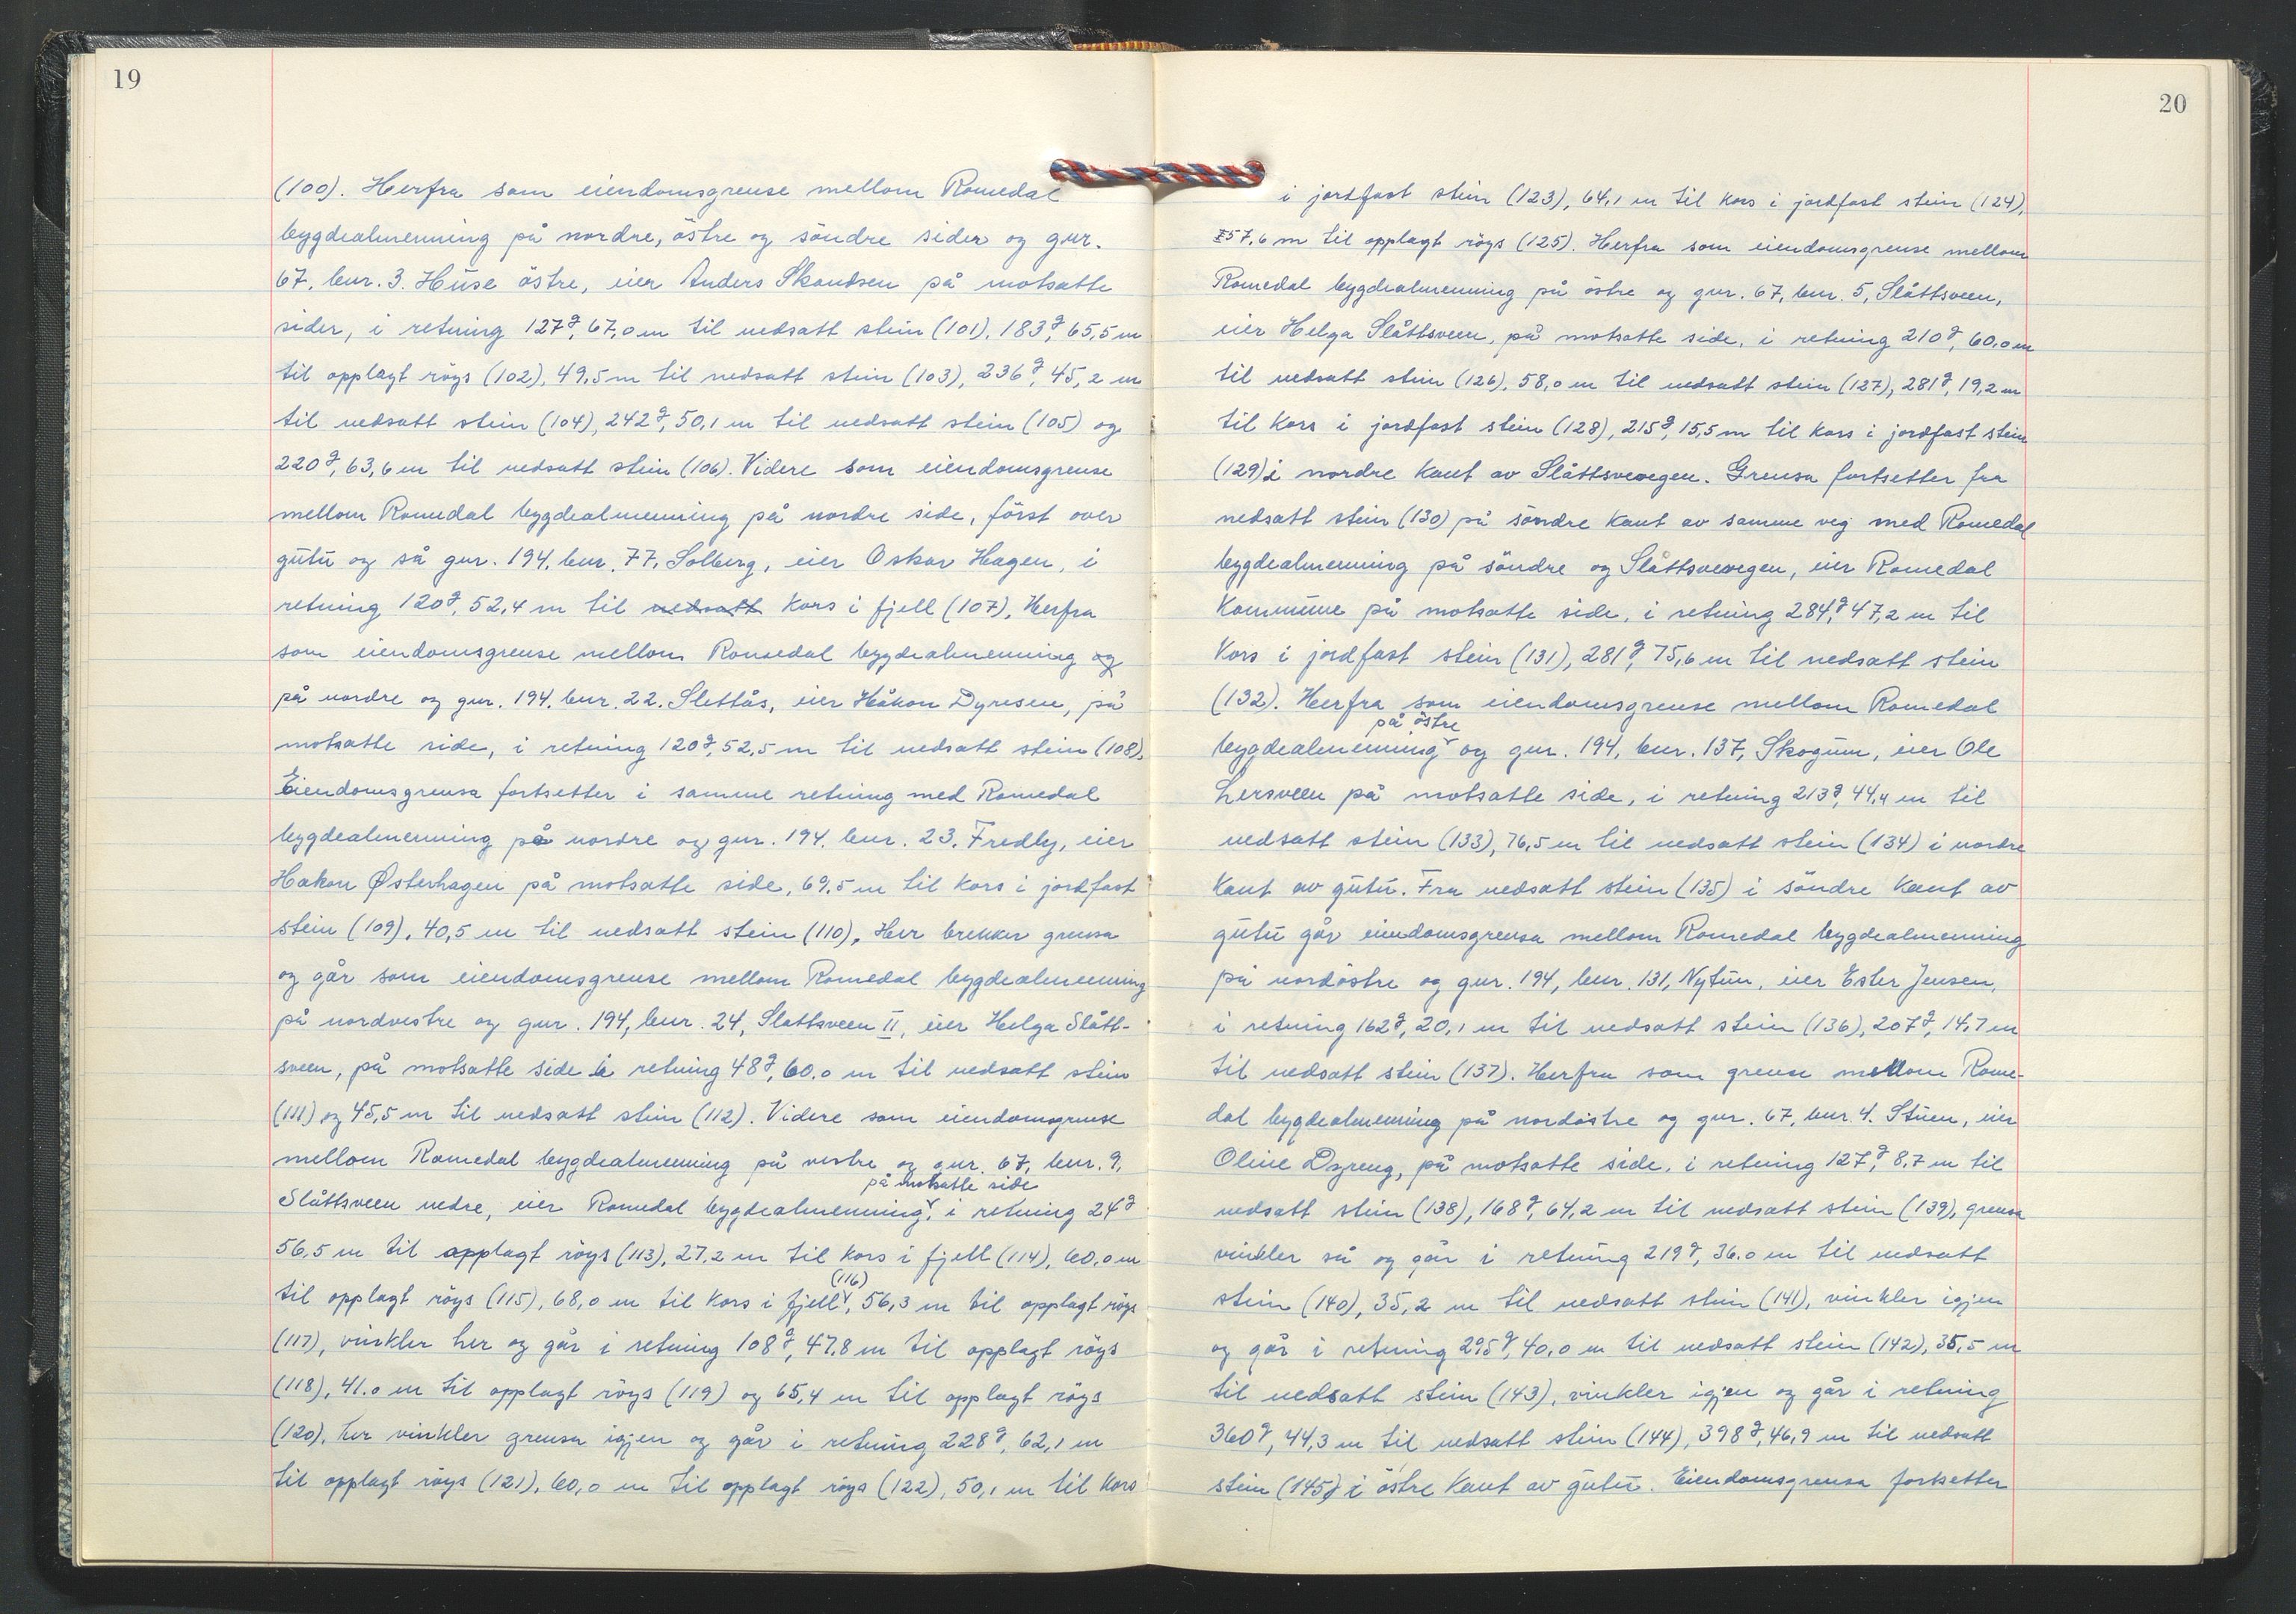 19
(100). Herfra som eiendomsgrense mellom Romedal
bygdealmenning på nordre, östre og söndre sider og gnr.
67, bnr. 3. Huse östre, eier Anders Skandsen på motsatte
sider, i retning 127g, 67,0 m til nedsatt stein (101), 183g, 65,5 m
til opplagt röys (102), 49,5 m til nedsatt stein (103), 236g, 45,2 m
til nedsatt stein (104), 242g, 50,1 m til nedsatt stein (105) og
220g, 63,6 m til nedsatt stein (106). Videre som eiendomsgrense
mellom Romedal bygdealmenning på nordre side, först over
gutu og så gnr. 194, bnr. 77, Solberg, eier Oskar Hagen, i
retning 120g, 52,4 m til nedsatt kors i fjell (107). Herfra
som eiendomsgrense mellom Romedal bygdealmenning og
på nordre og gnr. 194, bnr. 22. Slettås, eier Håkon Dyresen, på
motsatte side, i retning 120g, 52,5 m til nedsatt stein (108).
Eiendomsgrensa fortsetter i samme retning med Romedal
bygdealmenning på nordre og gnr. 194, bnr. 23. Fredly, eier
Hakon Østerhagen på motsatte side, 69,5 m til kors i jordfast
stein (109), 40,5 m til nedsatt stein (110). Her brekker grensa
og går som eiendomsgrense mellom Romedal bygdealmenning
på nordvestre og gnr. 194, bnr. 24, Slattsveen II, eier Helga Slått-
sveen, på motsatte side i retning 48g, 60,0 m til nedsatt stein
(111) og 45,5 m til nedsatt stein (112). Videre som eiendomsgrense
mellom Romedal bygdealmenning på vestre og gnr. 67, bnr. 9,
på motsatte side
Slåttsveen nedre, eier Romedal bygdealmenning, i retning 24g
56,5 m til opplagt röys (113), 27,2 m til kors i fjell (114), 60,0 m
(116)
til opplagt röys (115), 68,0 m til kors i fjell, 56,3 m til opplagt röys
(117), vinkler her og går i retning 108g, 47,8 m til opplagt röys
(118), 41,0 m til opplagt röys (119) og 65,4 m til opplagt röys
(120). Her vinkler grensa igjen og går i retning 228g, 62,1 m
til opplagt röys (121), 60,0 m til opplagt röys (122), 50,1 m til kors
20
i jordfast stein (123), 64,1 m til kors i jordfast stein (124),
57,6 m til opplagt röys (125). Herfra som eiendomsgrense mellom
Romedal bygdealmenning på östre og gnr. 67, bnr. 5, Slåttsveen,
eier Helga Slåttsveen, på motsatte side, i retning 210g, 60,0 m
til nedsatt stein (126), 58,0 m til nedsatt stein (127), 281g, 19,2 m
til kors i jordfast stein (128), 215g, 15,5 m til kors i jordfast stein
(129) i nordre kant av Slåttsvevegen. Grensa fortsetter fra
nedsatt stein (130) på söndre kant av samme veg med Romedal
bygdealmenning på söndre og Slåttsvevegen, eier Romedal
Kommune på motsatte side, i retning 284g, 47,2 m til
Kors i jordfast stein (131), 281g, 75,6 m til nedsatt stein
(132). Herfra som eiendomsgrense mellom Romedal
på östre
bygdealmenning og gnr. 194, bnr. 137, Skogum, eier Ole
Lersveen på motsatte side, i retning 213g, 44,4 m til
nedsatt stein (133), 76,5 m til nedsatt stein (134) i nordre
kant av gutu. Fra nedsatt stein (135) i söndre kant av
gutu går eiendomsgrensa mellom Romedal bygdealmenning
på nordöstre og gnr. 194, bnr. 131, Nytun, eier Ester Jensen,
i retning 162g, 20,1 m til nedsatt stein (136), 207g, 14,7 m
til nedsatt stein (137). Herfra som grense mellom Rome-
dal bygdealmenning på nordöstre og gnr. 67, bnr. 4. Stuen, eier
Oline Dyreng, på motsatte side, i retning 127g, 8,7 m til
nedsatt stein (138), 168g, 64,2 m til nedsatt stein (139), grensa
vinkler så og går i retning 219g, 36,0 m til nedsatt
stein (140), 35,2 m til nedsatt stein (141), vinkler igjen
og går i retning 295g, 40,0 m til nedsatt stein (142), 35,5 m
til nedsatt stein (143), vinkler igjen og går i retning
360g, 44,3 m til nedsatt stein (144), 398g, 46,9 m til nedsatt
stein (145) i östre kant av gutu. Eiendomsgrensa fortsetter